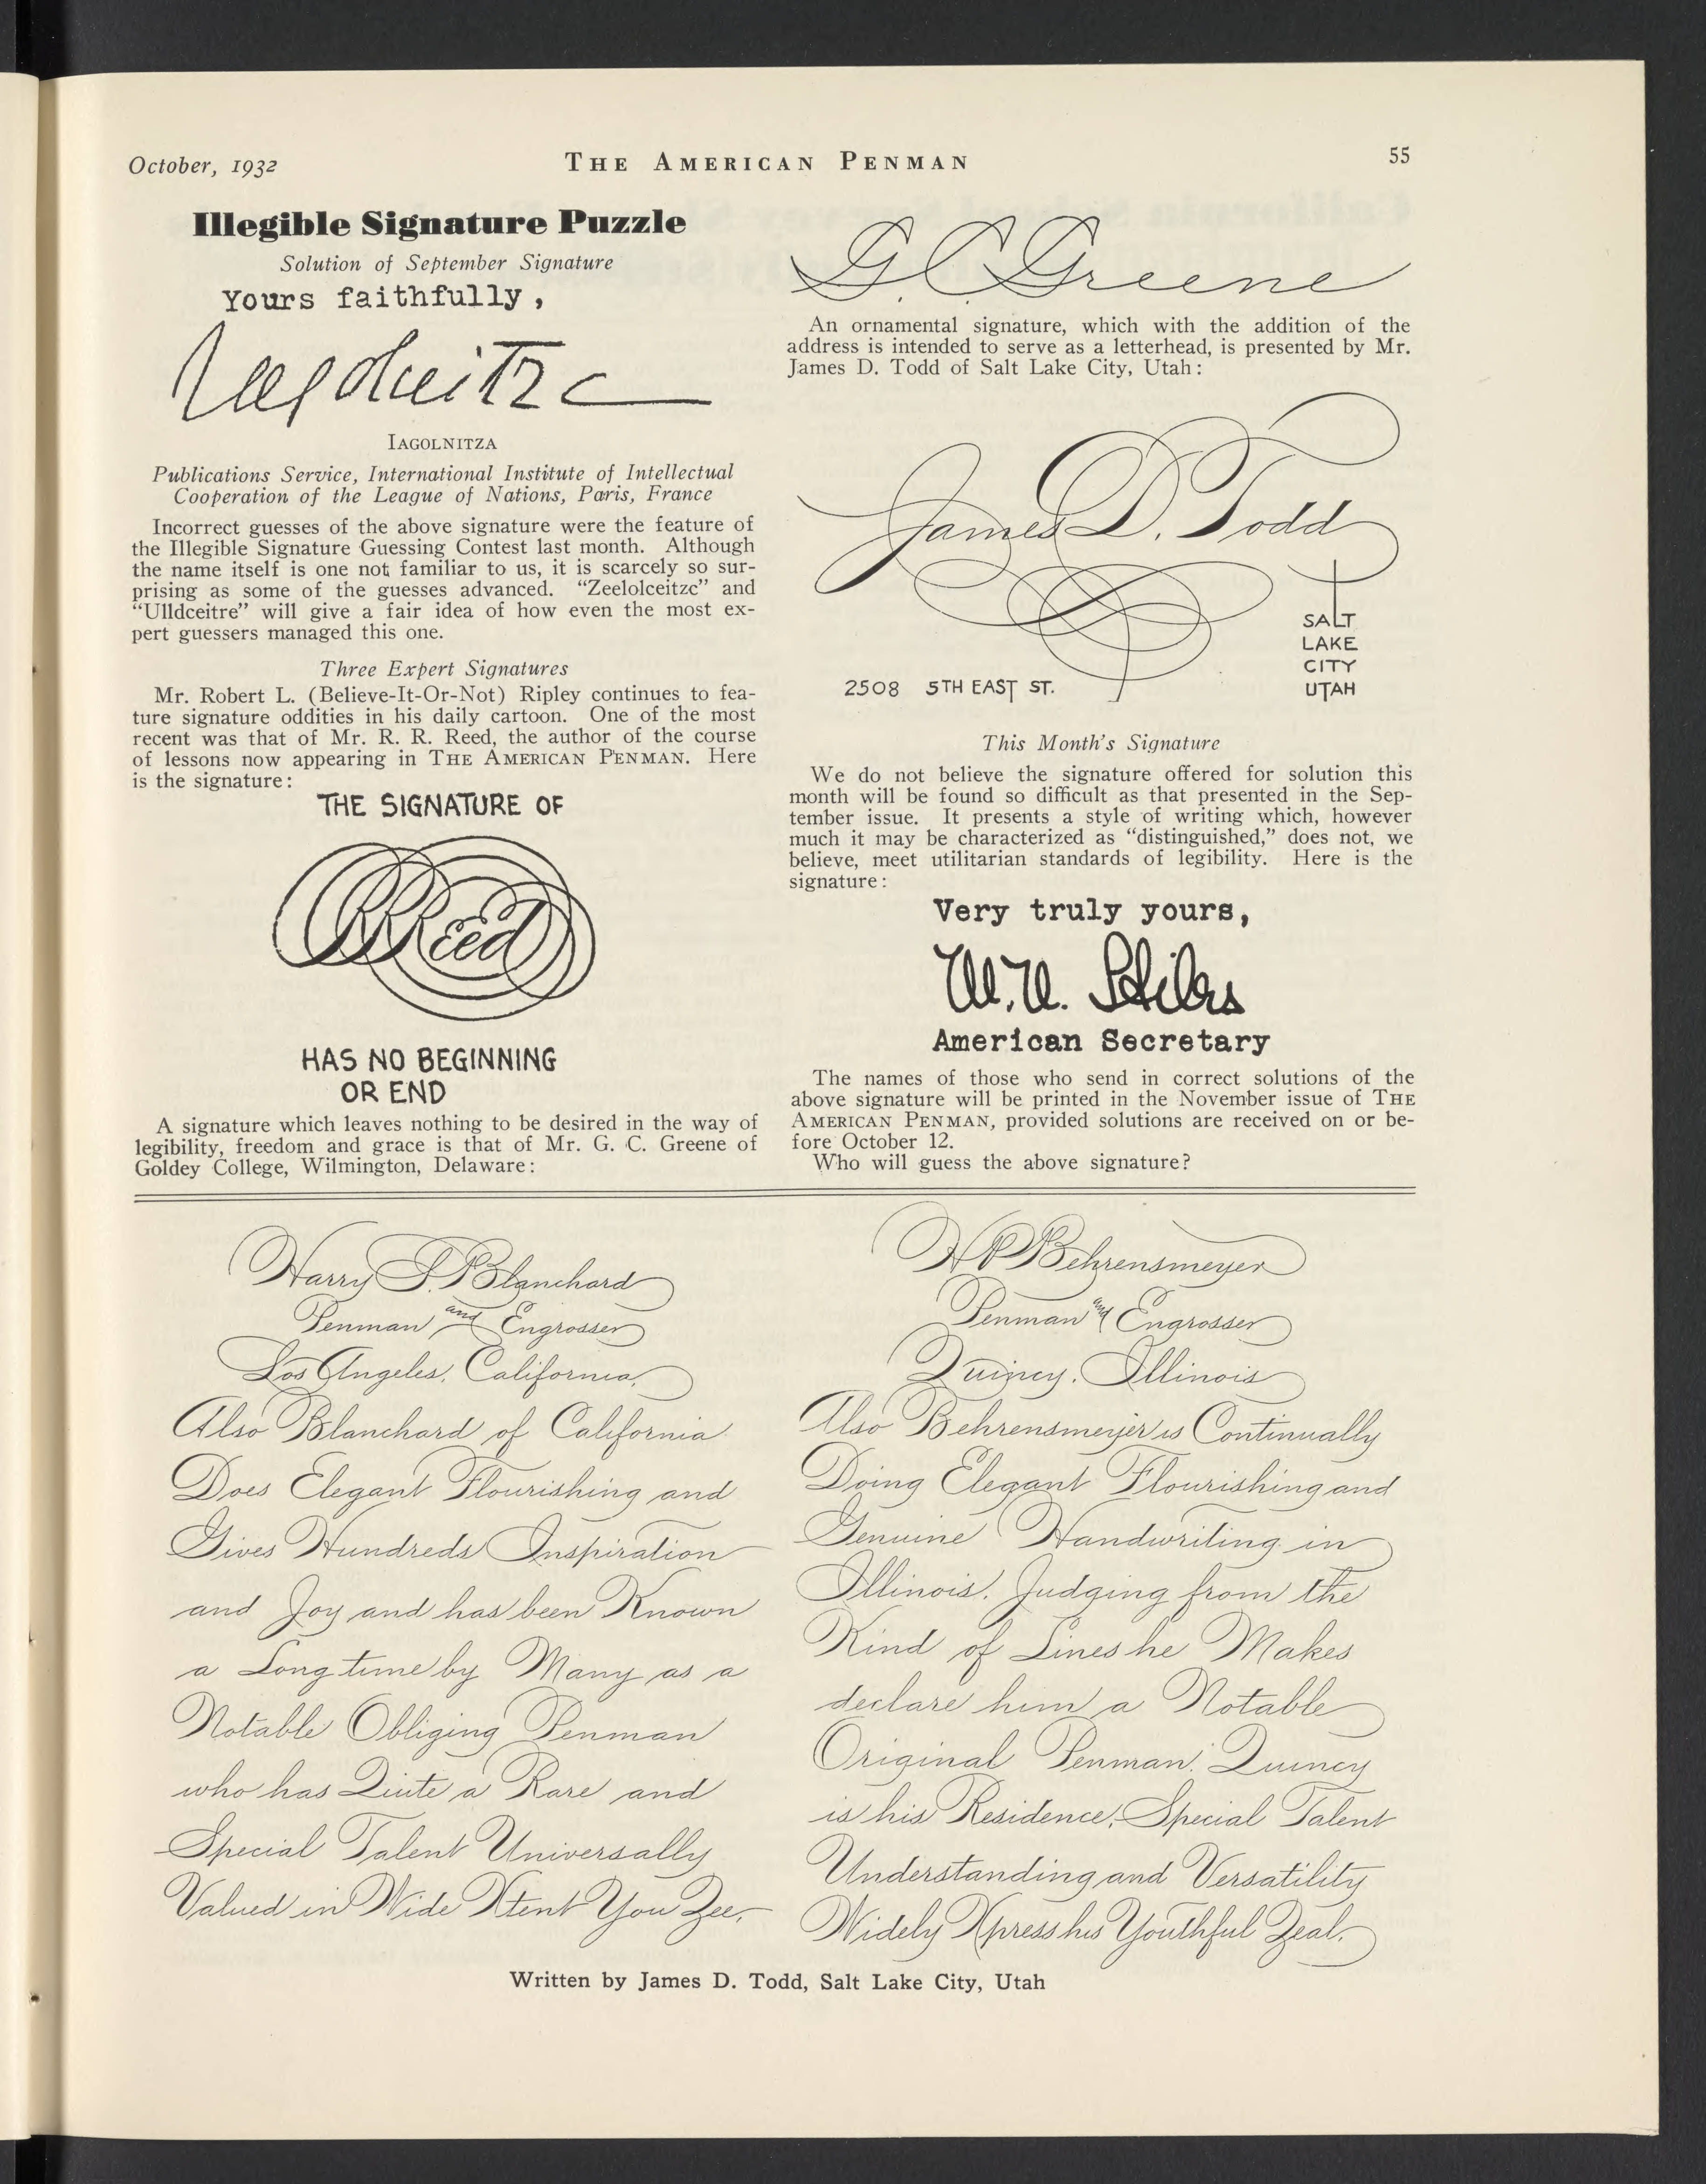 October, 1932
THE AMERICAN PENMAN
55
Illegible Signature Puzzle
Solution of September Signature
Yours faithfully,
IAGOLNITZA
Publications Service, International Institute of Intellectual
Cooperation of the League of Nations, Paris, France
Incorrect guesses of the above signature were the feature of
the Illegible Signature Guessing Contest last month. Although
the name itself is one not familiar to us, it is scarcely so sur-
prising as some of the guesses advanced. “Zeelolceitzc” and
“Ulldceitre” will give a fair idea of how even the most ex-
pert guessers managed this one.
Three Expert Signatures
Mr. Robert L. (Believe-It-Or-Not) Ripley continues to fea-
ture signature oddities in his daily cartoon. One of the most
recent was that of Mr. R. R. Reed, the author of the course
of lessons now appearing in THE AMERICAN PENMAN. Here
is the signature:
THE SIGNATURE OF
RR Reed
HAS NO BEGINNING
OR END
A signature which leaves nothing to be desired in the way of
legibility, freedom and grace is that of Mr. G. C. Greene of
Goldey College, Wilmington, Delaware:
G. C. Greene
An ornamental signature, which with the addition of the
address is intended to serve as a letterhead, is presented by Mr.
James D. Todd of Salt Lake City, Utah:
James D. Todd
2508 5TH EAST ST.
SALT
LAKE
CITY
UTAH
This Month's Signature
We do not believe the signature offered for solution this
month will be found so difficult as that presented in the Sep-
tember issue. It presents a style of writing which, however
much it may be characterized as “distinguished,” does not, we
believe, meet utilitarian standards of legibility. Here is the
signature:
Very truly yours,
American Secretary
The names of those who send in correct solutions of the
above signature will be printed in the November issue of THE
AMERICAN PENMAN, provided solutions are received on or be-
fore October 12.
Who will guess the above signature?
Harry S. Blanchard
Penman and Engrosser
Los Angeles, California.
Also Blanchard of California
Does Elegant Flourishing and
Gives Hundreds Inspiration
and Joy and has been Known
a Long time by Many as a
Notable Obliging Penman
who has Quite a Rare and
Special Talent Universally
Valued in Wide Xtent You Zee.
H P Behrensmeyer
Penman and Engrosser
Quincy, Illinois
Also Behrensmeyer is Continually
Doing Elegant Flourishing and
Genuine Handwriting in
Illinois. Judging from the
Kind of Lines he Makes
declare him a Notable
Original Penman. Quincy
is his Residence, Special Talent
Understanding and Versatility
Widely Xpress his Youthful Zeal.
Written by James D. Todd, Salt Lake City, Utah